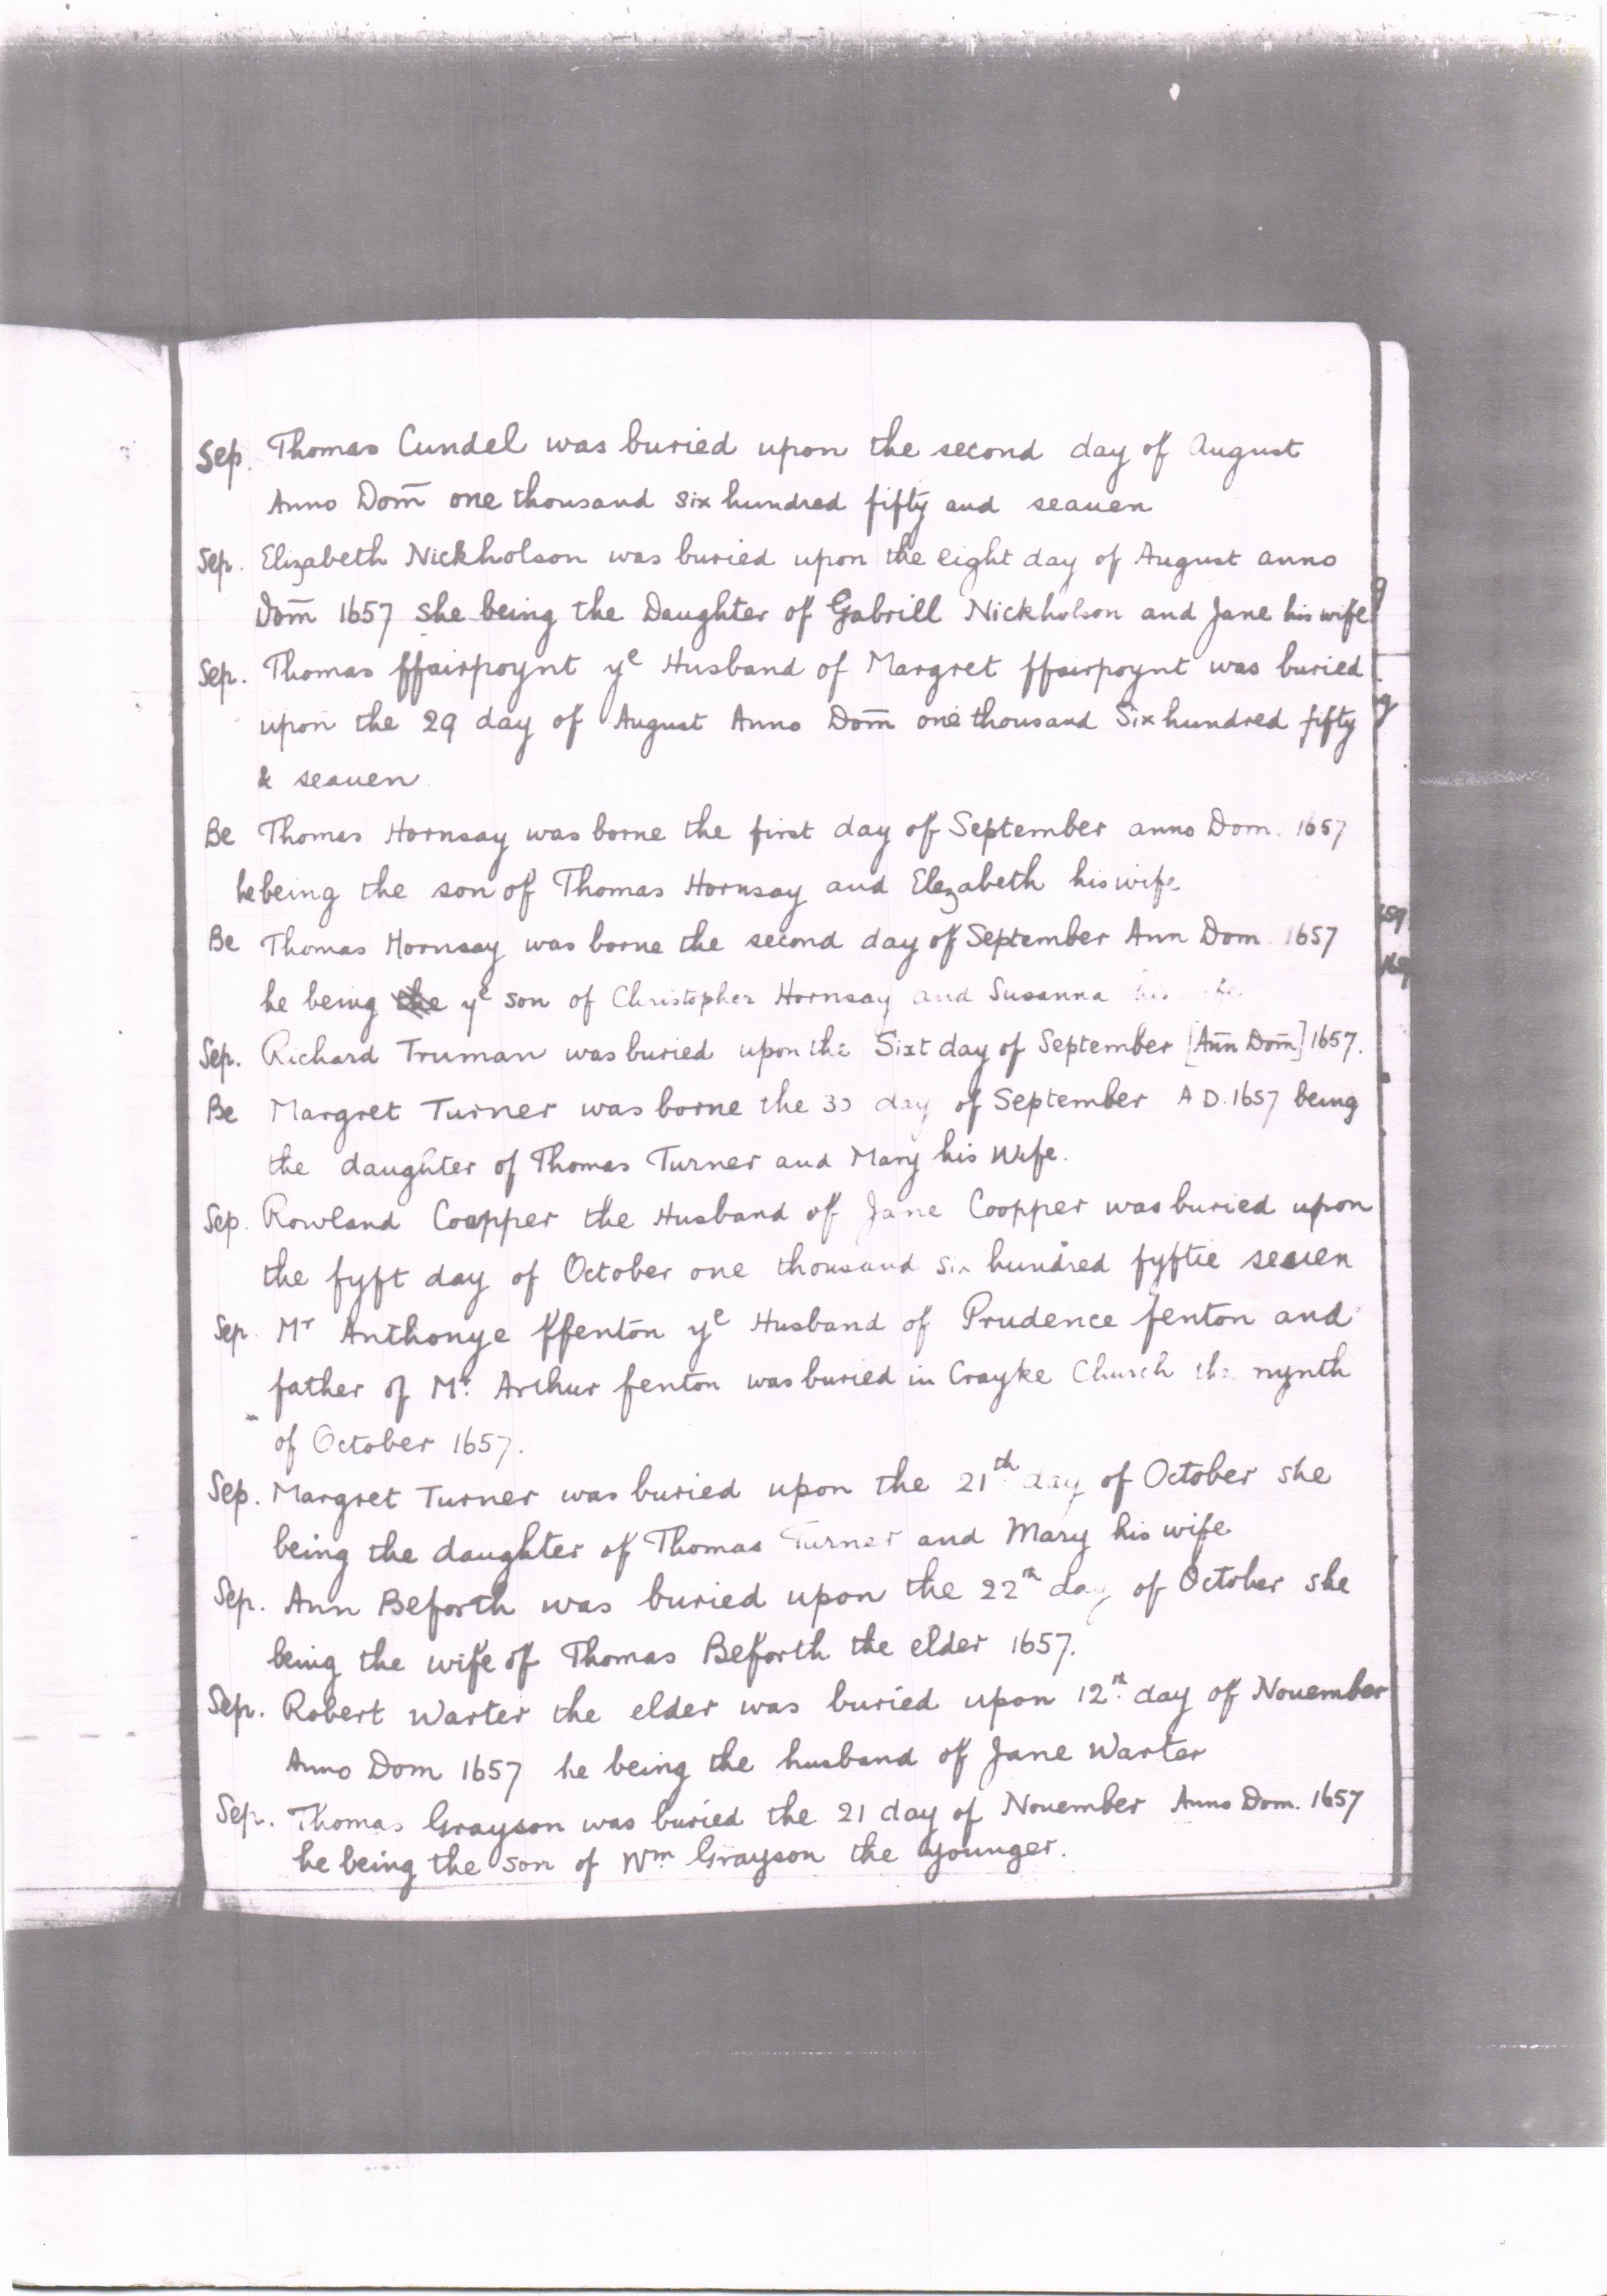 Sep. Thomas Cundel was buried upon the second day of August
Anno Dom̄ one thousand six hundred fifty and seauen
Sep. Elizabeth Nickholson was buried upon the eight day of August anno
Dom̄ 1657 she being the Daughter of Gabrill Nickholson and Jane his wife
Sep. Thomas ffairpoynt yᵉ Husband of Margret ffairpoynt was buried
upon the 29 day of August Anno Dom̄ one thousand Six hundred fifty
& seauen
Be Thomas Hornsay was borne the first day of September anno Dom. 1657
he being the son of Thomas Hornsay and Elezabeth his wife
Be Thomas Hornsay was borne the second day of September Ann Dom. 1657
he being the yᵉ son of Christopher Hornsay and Susanna his
Sep. Richard Truman was buried upon the Sixt day of September [Ann̄ Dom̄] 1657.
Be Margret Turner was borne the 30 day of September A D. 1657 being
the daughter of Thomas Turner and Mary his Wife.
Sep. Rowland Coopper the Husband of Jane Coopper was buried upon
the fyft day of October one thousand six hundred fyftie seauen
Sep. Mʳ Anthonye ffenton yᵉ Husband of Prudence fenton and
father of Mʳ. Arthur fenton was buried in Crayke Church the nynth
of October 1657.
Sep. Margret Turner was buried upon the 21ᵗʰ day of October she
being the daughter of Thomas Turner and Mary his wife
Sep. Ann Beforth was buried upon the 22ᵗʰ day of October she
being the wife of Thomas Beforth the elder 1657.
Sep. Robert Warter the elder was buried upon 12ᵗʰ day of Nouember
Anno Dom 1657 he being the husband of Jane Warter
Sep. Thomas Grayson was buried the 21 day of Nouember Anno Dom. 1657
he being the son of Wᵐ Grayson the younger.